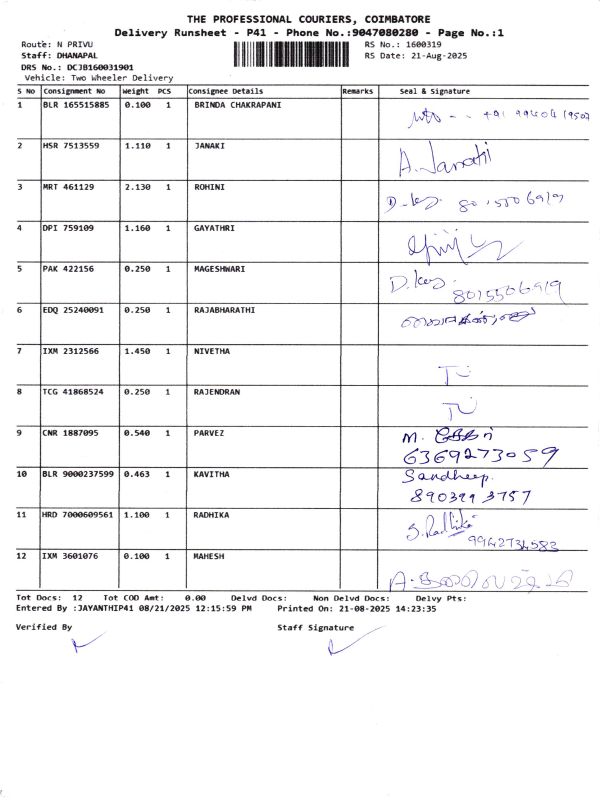 THE PROFESSIONAL COURIERS, COIMBATORE
Delivery Runsheet - P41 - Phone No.:9047080280 - Page No.:1
Route: N PRIVU RS No.: 1600319
Staff: DHANAPAL RS Date: 21-Aug-2025
DRS No.: DCJB160031901
Vehicle: Two Wheeler Delivery
S No Consignment No Weight PCS Consignee Details Remarks Seal & Signature
1 BLR 165515885 0.100 1 BRINDA CHAKRAPANI
2 HSR 7513559 1.110 1 JANAKI A. Janaki
3 MRT 461129 2.130 1 ROHINI 8015506919
4 DPI 759109 1.160 1 GAYATHRI
5 PAK 422156 0.250 1 MAGESHWARI 8015506919
6 EDQ 25240091 0.250 1 RAJABHARATHI
7 IXM 2312566 1.450 1 NIVETHA
8 TCG 41868524 0.250 1 RAJENDRAN
9 CNR 1887095 0.540 1 PARVEZ M.
6369273059
10 BLR 9000237599 0.463 1 KAVITHA Sandheep.
8903993757
11 HRD 7000609561 1.100 1 RADHIKA S. Radhika
9942734583
12 IXM 3601076 0.100 1 MAHESH
Tot Docs: 12 Tot COD Amt: 0.00 Delvd Docs: Non Delvd Docs: Delvy Pts:
Entered By :JAYANTHIP41 08/21/2025 12:15:59 PM Printed On: 21-08-2025 14:23:35
Verified By Staff Signature